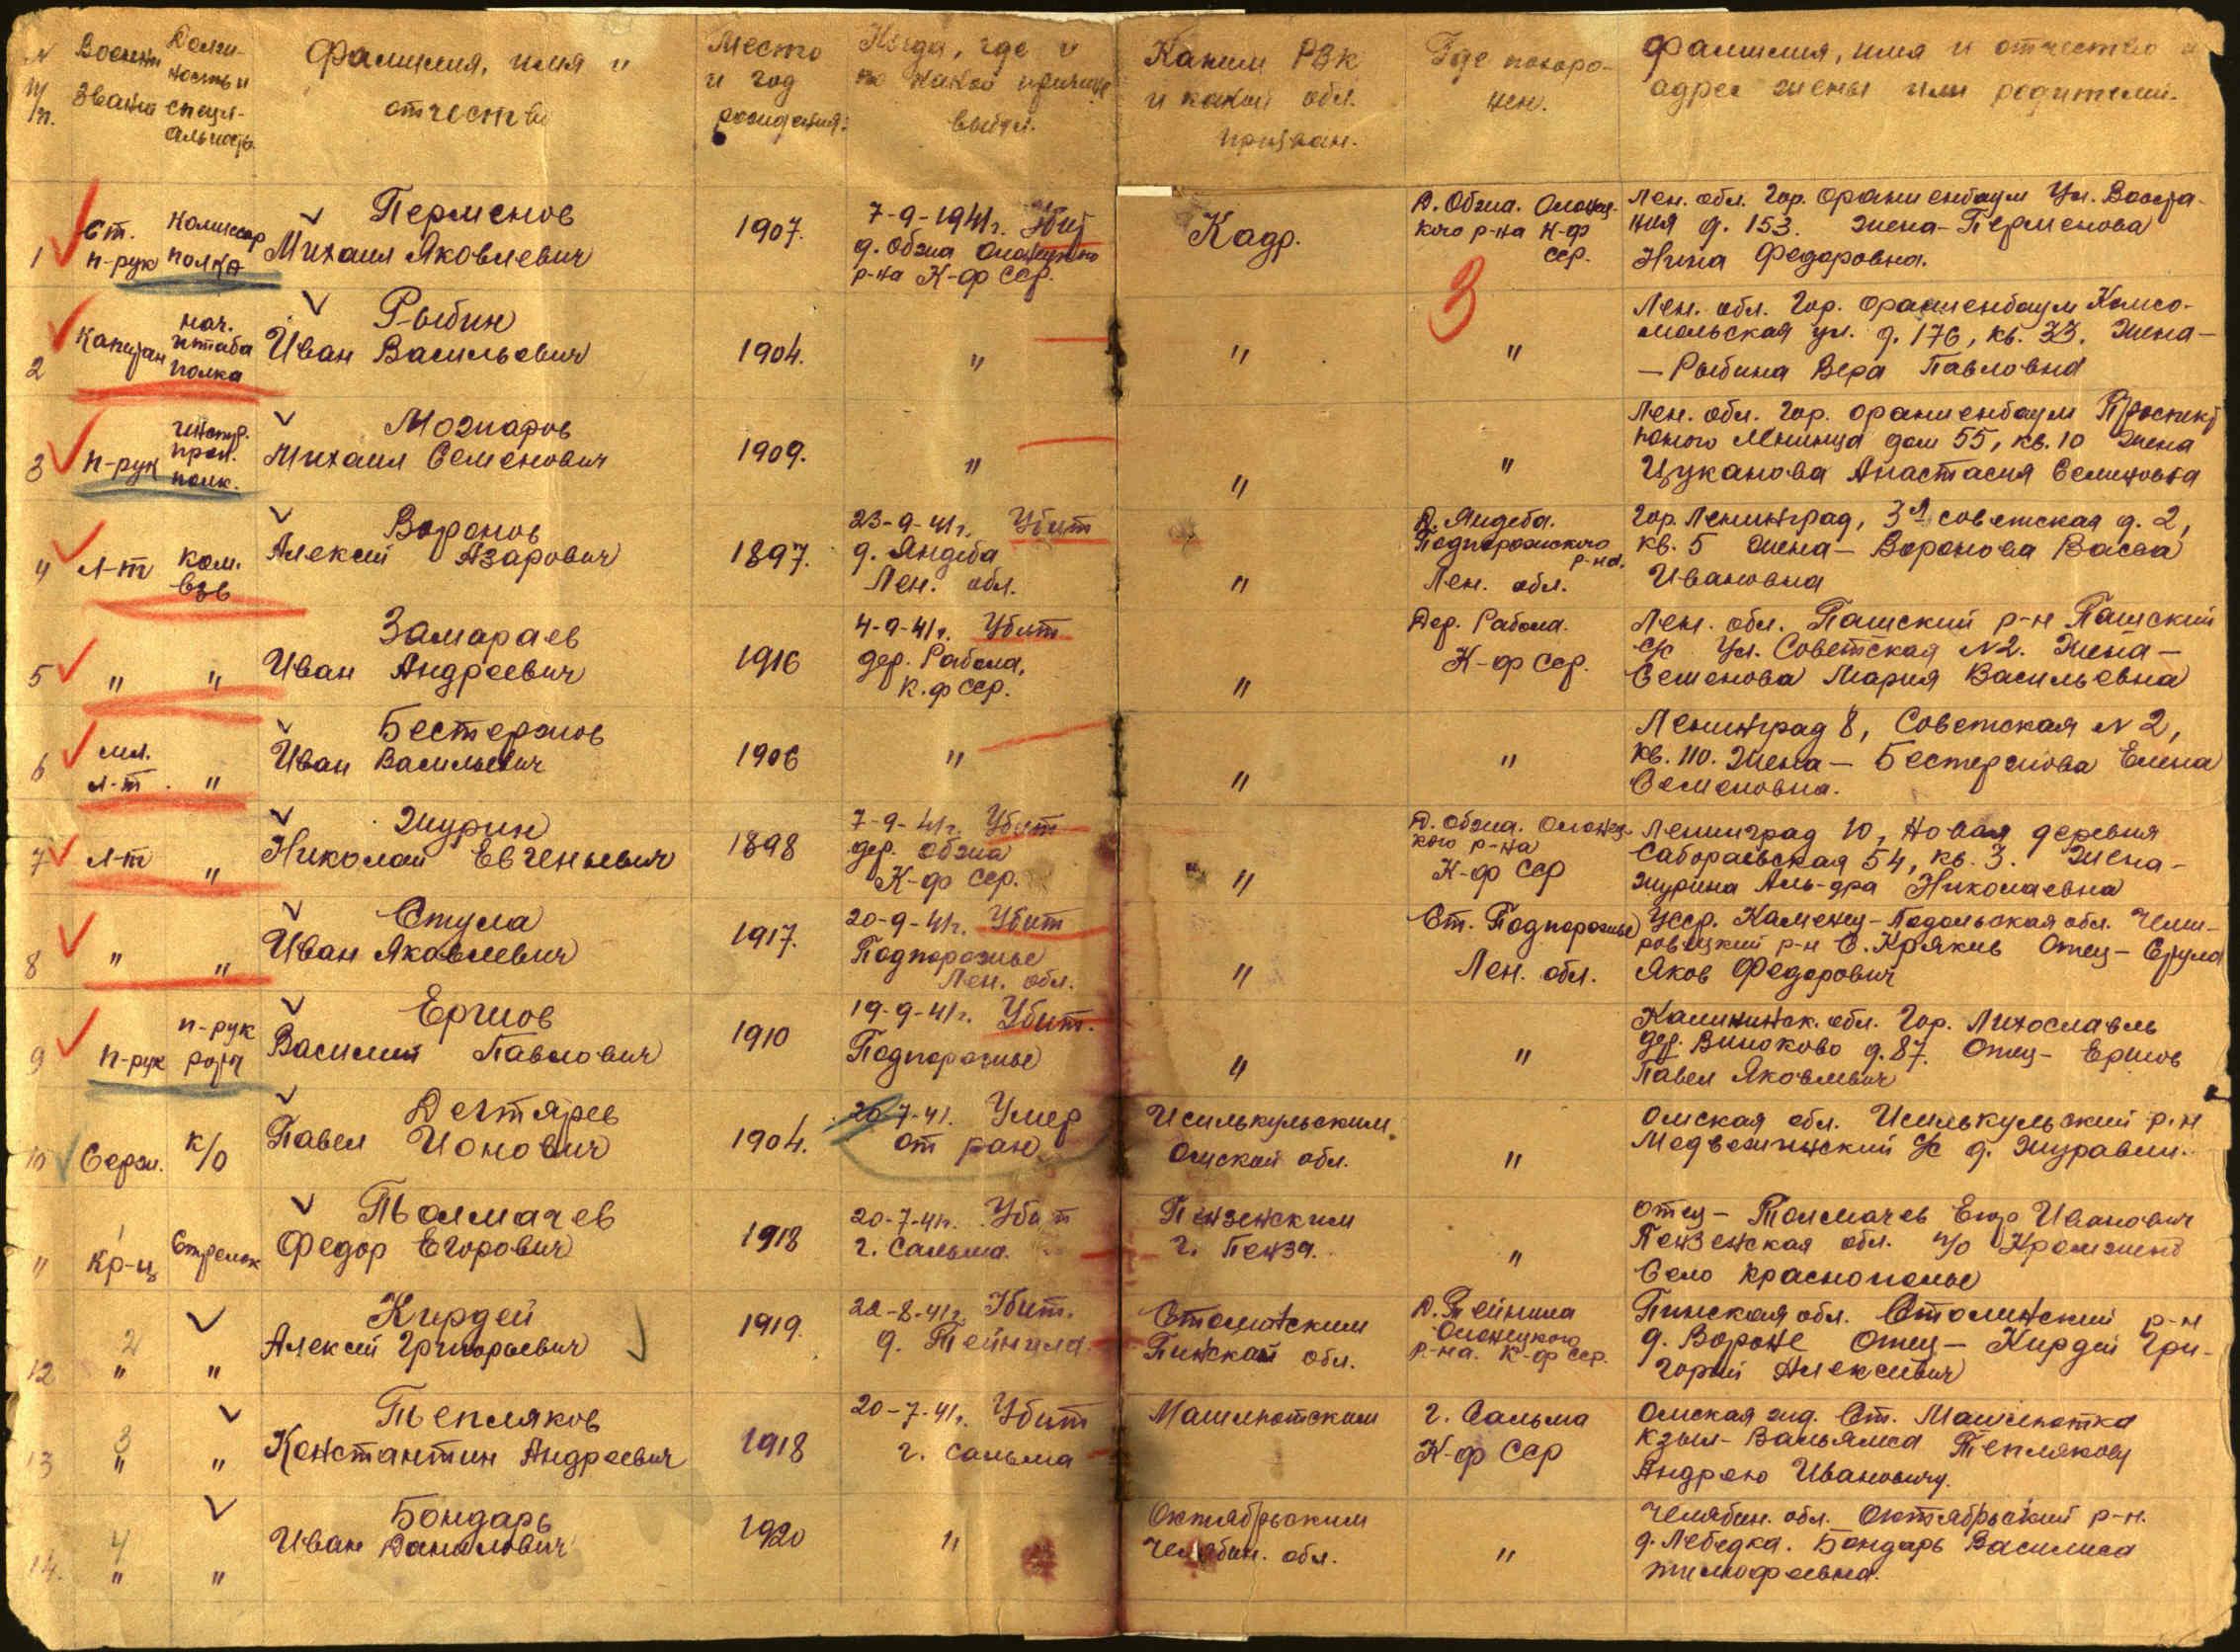 N п/п.
Военн. звание
Долж-
ность и
специ-
альность.
Фамилия, имя и
отчество
Место
и год
рождения:
Когда, где и
по какой причине
выбыл.
Каким РВК
и какой обл.
призван.
Где похоро-
нен.
Фамилия, имя и отчество и
адрес жены или родителей.
1
ст.
п-рук
комиссар
полка
Перменов
Михаил Яковлевич
1907.
7-9-1941г. Убит
д. Обжа Олонецкого
р-на К-ф ССР.
Кадр.
Д. Обжа. Олонец-
кого р-на К-ф
ССР.
Лен. обл. Гор. Ораниенбаум Ул. Восста-
ния д. 153. Жена - Перменова
Нина Федоровна.
3
2
капитан
нач.
штаба
полка
Рыбин
Иван Васильевич
1904.
"
"
"
Лен. обл. Гор. Ораниенбаум Комсо-
мольская ул. д. 176, кв. 33. Жена -
- Рыбина Вера Павловна
3
п-рук
инстр.
проп.
полк.
Можаров
Михаил Семенович
1909.
"
"
"
Лен. обл. Гор. Ораниенбаум Проспект
юного Ленинца дом 55, кв. 10 Жена
Цуканова Анастасия Семеновна
4
л-т
ком.
взв
Воронов
Алексей Азарович
1897.
23-9-41г. Убит
д. Яндеба
Лен. обл.
"
Д. Яндеба.
Подпорожского
р-на.
Лен. обл.
Гор. Ленинград, 3я советская д. 2,
кв. 5 Жена - Воронова Васса
Ивановна
5
"
"
Замараев
Иван Андреевич
1916
4-9-41г. Убит
дер. Рабола,
К.ф ССР.
"
Дер. Рабола.
К-ф ССР.
Лен. обл. Пашский р-н Пашский
с/с Ул. Советская N2. Жена -
Семенова Мария Васильевна
6
мл.
л-т
"
Бестержов
Иван Васильевич
1906
"
"
"
Ленинград 8, Советская N 2,
кв. 110. Жена - Бестержова Елена
Семеновна.
7
л-т
"
Журин
Николай Евгеньевич
1898
7-9-41г. Убит
дер. Обжа
К-ф ССР.
"
Д. Обжа. Олонец-
кого р-на
К-ф ССР
Ленинград 10, Новая деревня
54, кв. 3. Жена -
Журина Аль-дра Николаевна
8
"
"
Стула
Иван Яковлевич
1917.
20-9-41г. Убит
Подпорожье
Лен. обл.
"
Ст. Подпорожье
Лен. обл.
УССР. Каменец-Подольская обл. Чеми-
ровецкий р-н С. Кряков Отец - Стула
Яков Федорович
9
п-рук
п-рук
роты
Ершов
Василий Павлович
1910
19-9-41г. Убит.
Подпорожье
"
"
Калининск. обл. Гор. Лихославль
дер. Виноково д. 87. Отец - Ершов
Павел Яковлевич
10
Серж.
к/о
Дегтярев
Павел Ионович
1904.
20-7-41. Умер
от ран
Исилькульским
Омской обл.
"
Омская обл. Исилькульский р-н
Медвежинский с/с д. Журавли.
11
1
кр-ц
Стрелок
Толмачев
Федор Егорович
1918
20-7-41г. Убит
г. Сальма.
Пензенским
г. Пенза.
"
Отец - Толмачев Егор Иванович
Пензенская обл. п/о
Село Краснополье
12
2
"
"
Кирдей
Алексей Григорьевич
1919.
22-8-41г. Убит.
д. Тейнила
Столинским
Пинской обл.
Д. Тейнила
Олонецкого
р-на. К-ф ССР.
Пинская обл. Столинский р-н
д. Вороне Отец - Кирдей Гри-
горий Алексеевич
13
3
"
"
Тепляков
Константин Андреевич
1918
20-7-41г. Убит
г. Сальма
г. Сальма
К-ф ССР
Омская жд. Ст.
Теплякову
Андрею Ивановичу.
14.
4
"
"
Бондарь
Иван Данилович
1920
"
Октябрьским
Челябин. обл.
"
Челябин. обл. Октябрьский р-н.
д. Лебедка. Бондарь Василиса
Тимофеевна.